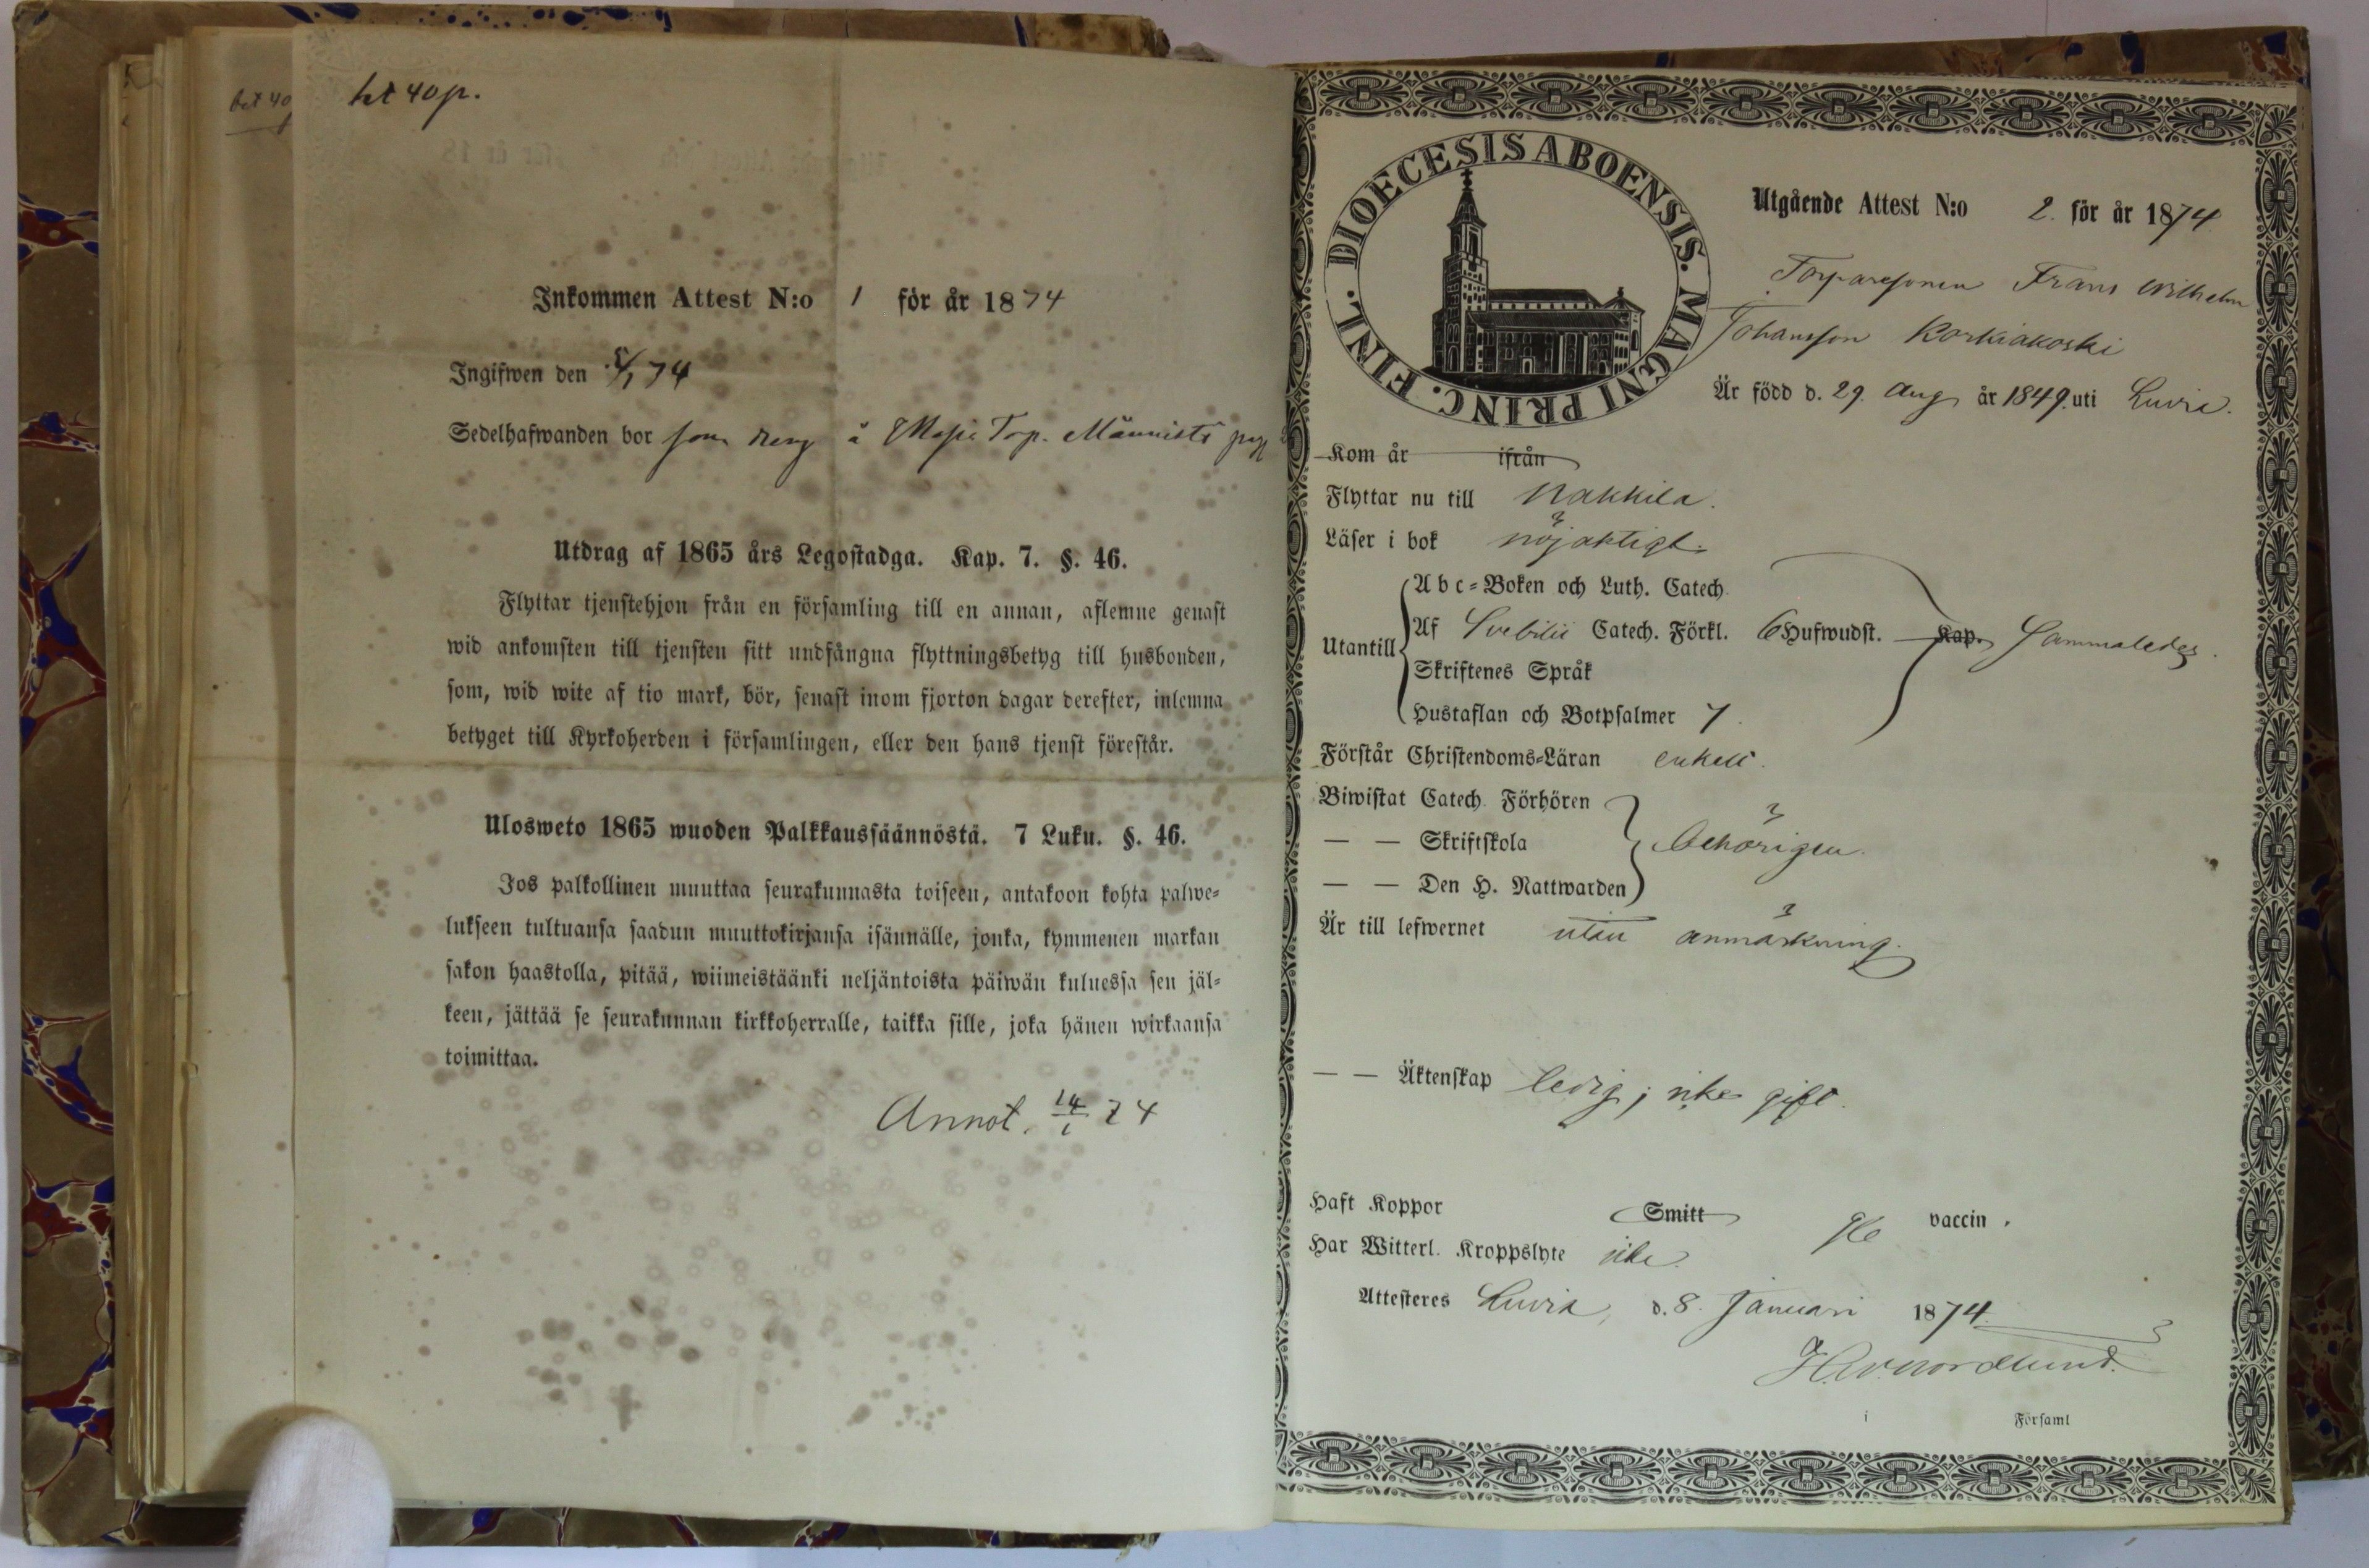 bet 40
bet 40 p.
Inkommen Attest N:o 1 för år 1874
Ingifwen den 5/1 74
Sedelhafwanden bor som dreng å Torp. Männistö
Utdrag af 1865 års Legostadga. Kap. 7. §. 46.
Flyttar tjenstehjon från en församling till en annan, aflemne genast
wid ankomsten till tjensten sitt undfångna flyttningsbetyg till husbonden,
som, wid wite af tio mark, bör, senast inom fjorton dagar derefter, inlemna
betyget till Kyrkoherden i församlingen, eller den hans tjenst förestår.
Ulosweto 1865 wuoden Palkkaussäännöstä. 7 Luku. §. 46.
Jos palkollinen muuttaa seurakunnasta toiseen, antakoon kohta palwe=
lukseen tultuansa saadun muuttokirjansa isännälle, jonka, kymmenen markan
sakon haastolla, pitää, wiimeistäänki neljäntoista päiwän kuluessa sen jäl=
keen, jättää se seurakunnan kirkkoherralle, taikka sille, joka hänen wirkaansa
toimittaa.
Annot. 14/1 74
DIOECESIS ABOENSIS. MAGNI PRINC. FINL.
Utgående Attest N:o 2. för år 1874
Torparesonen Frans Wilhelm
Johansson Korkiakoski
Är född d. 29. Aug år 1849. uti Luvia.
Kom år ifrån
Flyttar nu till Nakkila.
Läser i bok nöjaktigt.
Utantill
Abc=Boken och Luth. Catech.
Af Svebilii Catech. Förkl. 6 Hufwudst. Kap. Sammaledes.
Skriftenes Språk
Hustaflan och Botpsalmer 7.
Förstår Christendoms=Läran enkelt.
Biwistat Catech. Förhören
— — Skriftskola behörigen.
— — Den H. Nattwarden
Är till lefwernet utan anmärkning.
— — Äktenskap ledig; icke gift.
Haft Koppor Smitt vaccin.
Har Witterl. Kroppslyte icke.
Attesteres Luvia, d. 8. Januari 1874.
Nordlund.
i Församl